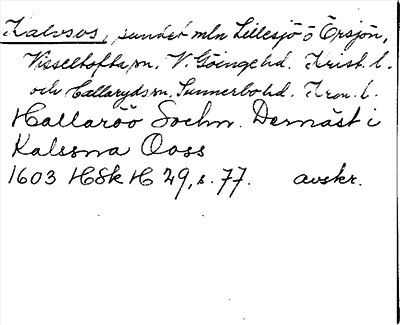 Kalvsos, sundet mln Lillesjö o Örsjön,
Visseltofta sn. V. Göinge hd. Krist. l.
och Hallaryds sn. Sunnerbo hd. Kron. l.
Hallaröö Sochn. Dernäst i
Kalssma Ooss
1603 HSk H 29, s. 77. avskr.